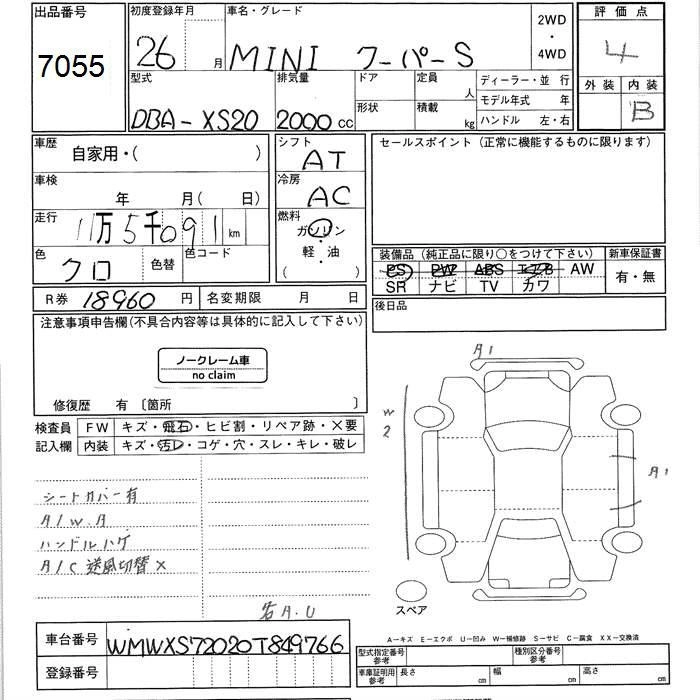 出品番号
7055
初度登録年月
26 月
車名・グレード
MINI クーパーS
2WD
・
4WD
評価点
4
外装 内装
B
型式
DBA-XS20
排気量
2000 cc
ドア
形状
定員
人
積載
kg
ディーラー・並行
モデル年式 年
ハンドル 左・右
車歴
自家用・( )
シフト
AT
セールスポイント(正常に機能するものに限ります)
車検
年 月( 日)
冷房
AC
走行
11万5千091 km
燃料
ガソリン
・
軽・油
( )
色
クロ
色替
色コード
装備品(純正品に限り○をつけて下さい)
新車保証書
PS PW ABS エアB AW
有・無
SR ナビ TV カワ
R券 18960 円
名変期限 月 日
後日品
注意事項申告欄(不具合内容等は具体的に記入して下さい)
ノークレーム車
no claim
修復歴 有 〔箇所 〕
検査員
記入欄
FW キズ・飛石・ヒビ割・リペア跡・×要
内装 キズ・汚レ・コゲ・穴・スレ・キレ・破レ
シートカバー有
A/W.A
ハンドルハゲ
A/C 送風切替×
各A.U
A1
W
2
A1
スペア
A―キズ E―エクボ U―凹み W―補修跡 S―サビ C―腐食 XX―交換済
車台番号
WMWXS72020T849766
登録番号
型式指定番号
参考
種別区分番号
参考
車庫証明用
参考
長さ cm
幅 cm
高さ cm